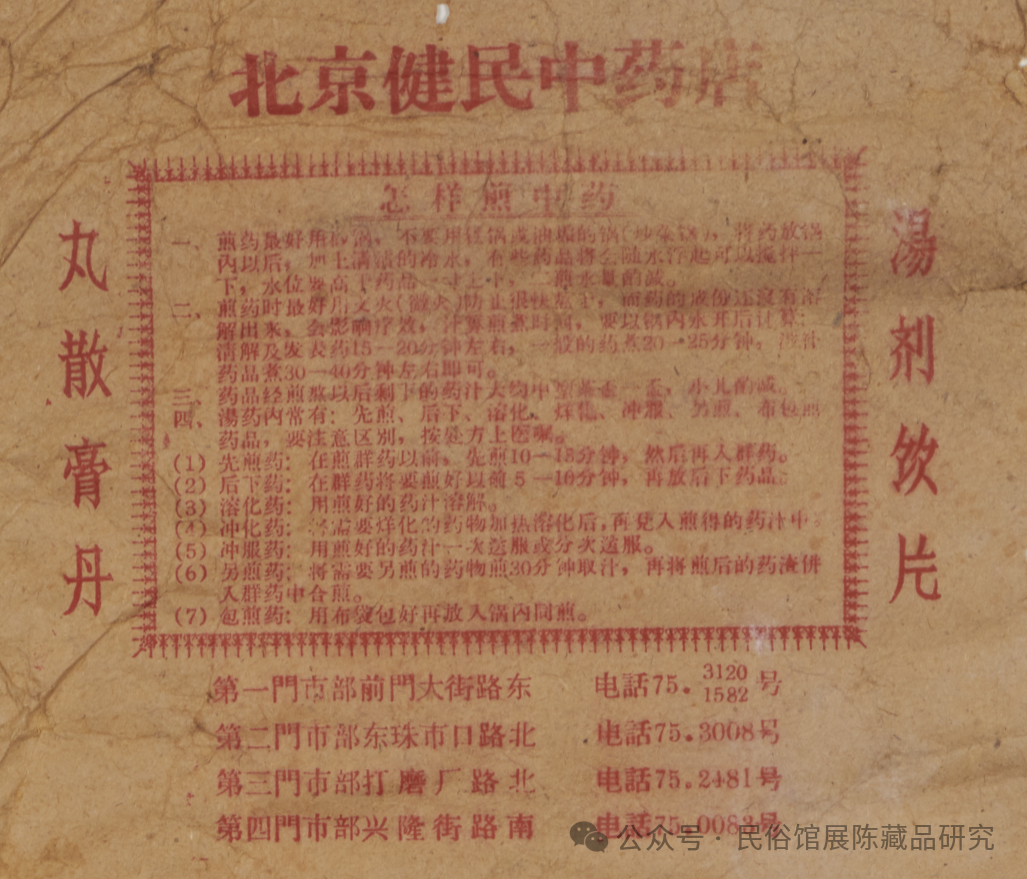 北京健民中药店
丸散膏丹
湯剂饮片
怎样煎中药
一、煎药最好用砂锅，不要用铁锅或油垢的锅(炒菜锅)，将药放锅
内以后，加上满够的冷水，有些药品将会随水浮起可以搅拌一
下，水位要高于药品一寸上下，二煎水量酌减。
二、煎药时最好用文火(微火)防止很快熬干，而药的成份还没有溶
解出来，会影响疗效，计算煎煮时间，要以锅内水开后计算：
清解及发表药15—20分钟左右，一般的药煮20—25分钟，
药品煮30—40分钟左右即可。
三、药品经煎熬以后剩下的药汁大约中型茶杯一杯，小儿酌减。
四、湯药内常有：先煎、后下、溶化、烊化、冲服、另煎、布包煎
药品，要注意区别，按处方上医嘱。
(1) 先煎药：在煎群药以前，先煎10—15分钟，然后再入群药。
(2) 后下药：在群药将要煎好以前5—10分钟，再放后下药品。
(3) 溶化药：用煎好的药汁溶解。
(4) 冲化药：将需要烊化的药物加热溶化后，再兑入煎得的药汁中。
(5) 冲服药：用煎好的药汁一次送服或分次送服。
(6) 另煎药：将需要另煎的药物煎30分钟取汁，再将煎后的药渣併
入群药中合煎。
(7) 包煎药：用布袋包好再放入锅内同煎。
第一門市部前門大街路东 电話75.3120 1582号
第二門市部东珠市口路北 电話75.3008号
第三門市部打磨厂路北 电話75.2481号
第四門市部兴隆街路南 电話75.0083号
公众号·民俗馆展陈藏品研究